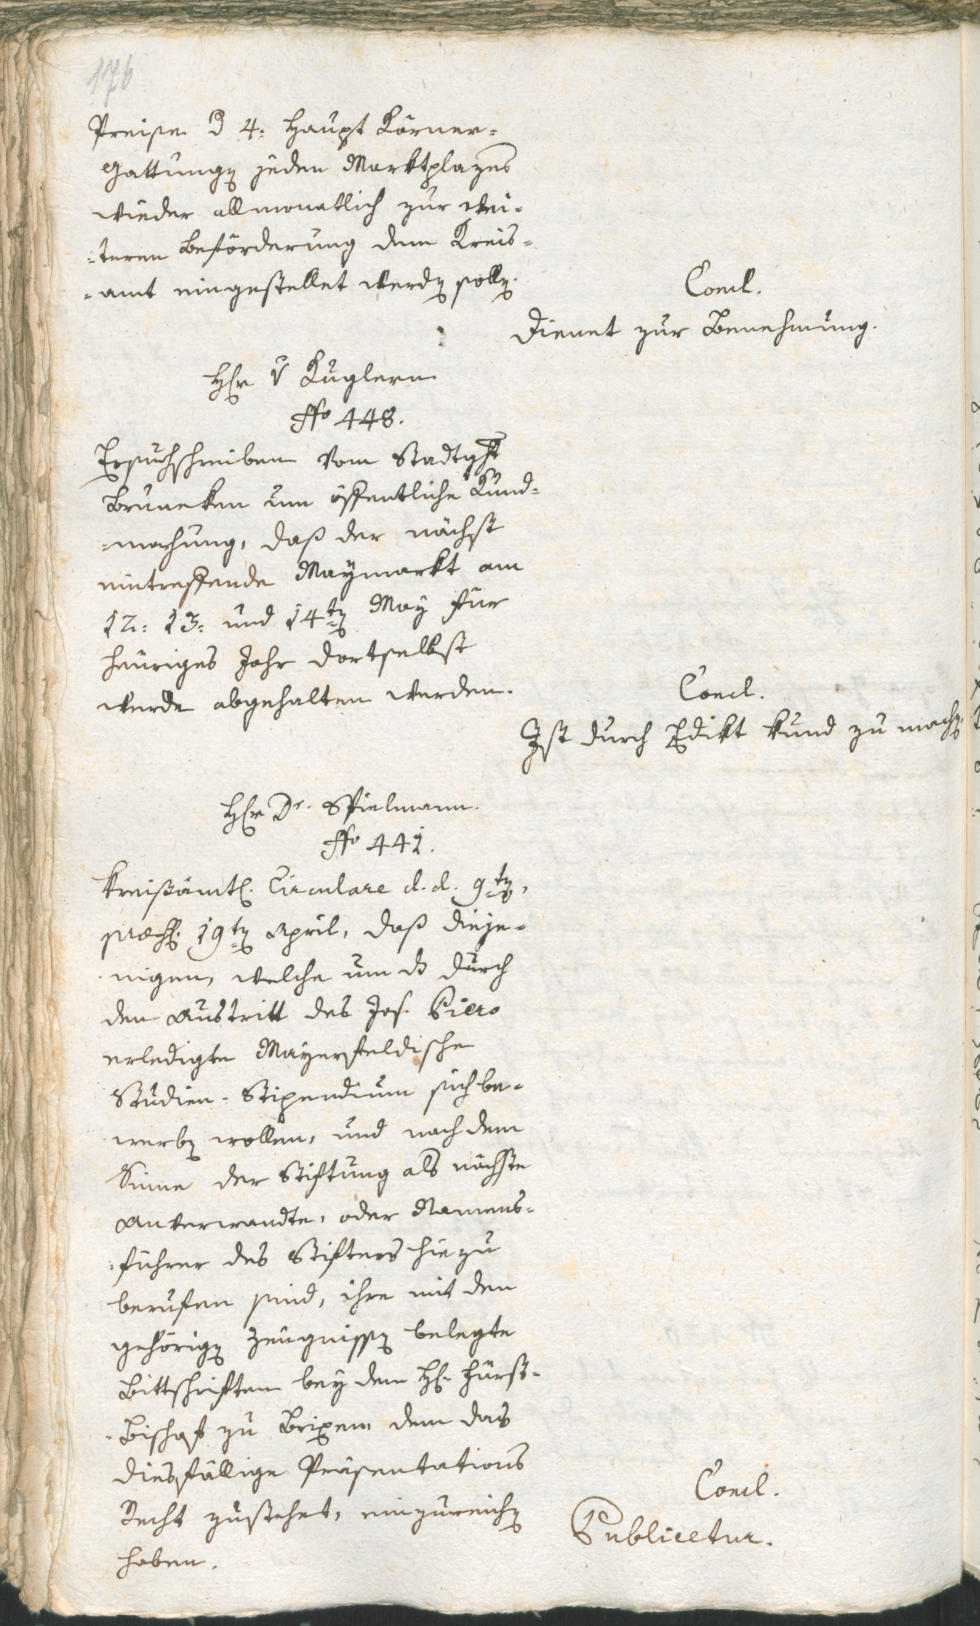 176
Preise d 4: Haupt Körner-
gattung jeden Marktplazes
wieder allmonatlich zur wei-
-teren Beförderung dem Kreis-
-amt eingestellet werdn solln.
Concl.
Dienet zur Benehmung.
Hr v Kuglern
No 448.
Ersuchschreiben vom Stadtght
Bruneken um öffentliche Kund-
-machung, daß der nächst
eintreffende Maymarkt am
12: 13: und 14tn May für
heuriges Jahr dortselbst
werde abgehalten werden.
Concl.
Ist durch Edikt kund zu machn.
Hr Dr. Spielmann.
No 441.
Kreisämtl. Circulare d. d. 9tn,
19tn April, daß dieje-
nigen, welche um ds durch
den Austritt des Jos. Piero
erledigte Mayersfeldische
Studien-Stipendium sich be-
werbn wollen, und nach dem
Sinne der Stiftung als nächste
Anverwandte, oder Namens-
-führer des Stifters hiezu
berufen sind, ihre mit den
gehörign Zeugnissn belegte
Bittschriften bey dem H. Fürst-
-Bischof zu Brixen dem das
diesfällige Präsentations
Recht zustehet, einzureichn
haben.
Concl.
Publicetur.